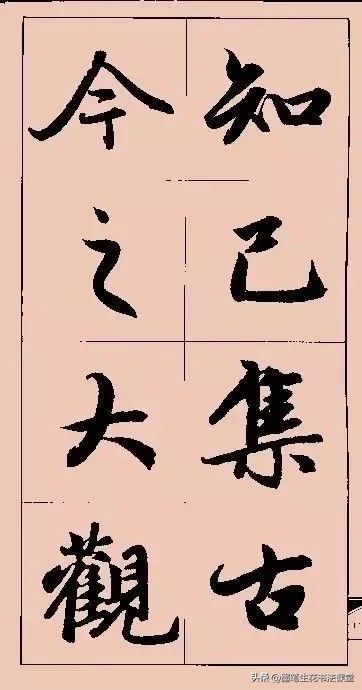 知己集古
今之大觀
头条 @墨笔生花书法课堂